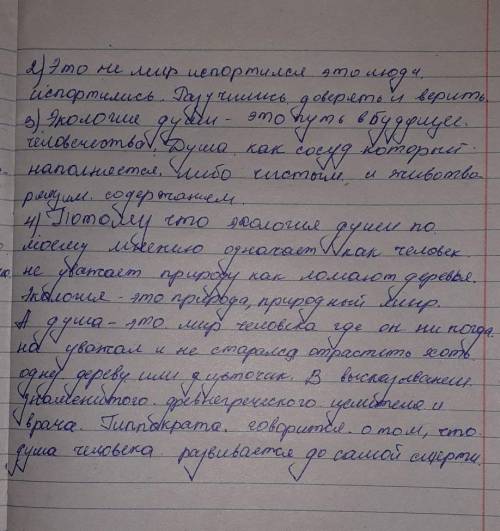 2) Это не мир испортился это люди.
испортились. Разучились доверять и верить.
3) Экология души - это путь в будущее.
человечества. Душа, как сосуд который
наполняется. либо чистым. и животво
рящим. содержанием.
4) Потому что экология души по
моему мнению одначает как человек.
не уважает природу как ломают деревья.
Экология - это природа, природный мир.
А душа - это мир человека где он ни когда.
на уважал и не старался отрастить хоть
одну дереву или цветочик. В высказывании.
знаменитого. древнегреческого целителя и
врача. Гиппократа. говорится. о том, что.
душа человека. развивается до самой смерти.